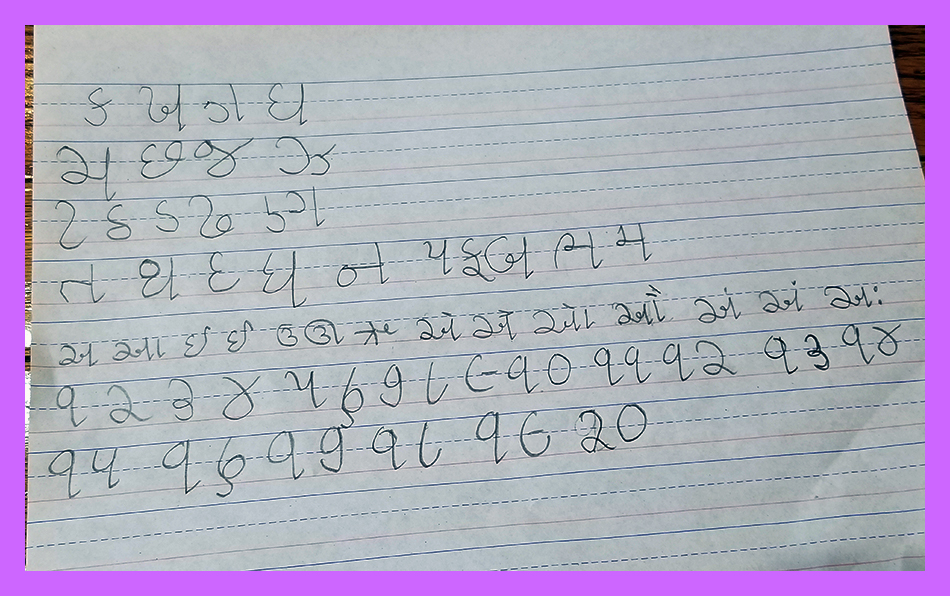 ક ખ ગ ઘ
ચ છ જ ઝ
ટ ઠ ડ ઢ ણ
ત થ દ ધ ન પ ફ બ ભ મ
અ આ ઇ ઈ ઉ ઊ ઋ એ ઐ ઓ ઔ અં અં અઃ
૧ ૨ ૩ ૪ ૫ ૬ ૭ ૮ ૯ ૧૦ ૧૧ ૧૨ ૧૩ ૧૪
૧૫ ૧૬ ૧૭ ૧૮ ૧૯ ૨૦